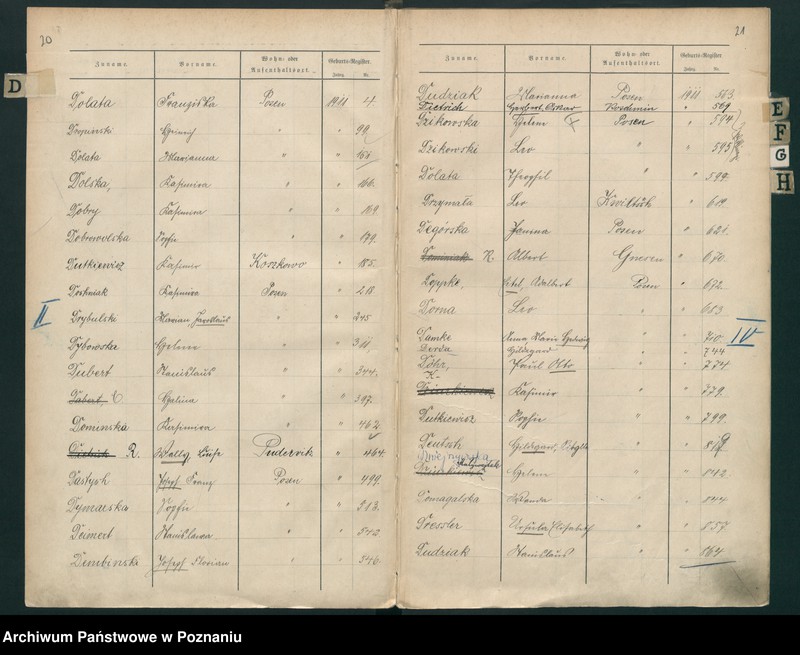 20
D
Zuname. Vorname. Wohn- oder Aufenthaltsort. Geburts-Register
Jahrg. Nr.
Dolata Franziska Posen 1911 4.
Heinrich " " 99
Dolata Marianna " " 155
Dolska, Kasimira " " 166.
Dobry Kasimira " " 169
Dobrowolska Sophie " " 179.
Dutkiewicz Kasimir Koszkowo " 185.
Kasimira Posen " 218
II Grybulski Marian " 245
Dybowska Helene " " 311
Dubert Stanislaus " " 344.
Dabert, Helena " " 397.
Dominska Kasimira " " 462
R. Luise Pudewitz " 464
Josef Franz Posen " 499.
Dymarska Sophie " " 513.
Deinert Stanislawa " " 542
Dembinska Josef Florian " " 546
21
E
F
G
H
Zuname. Vorname. Wohn- oder Aufenthaltsort. Geburts-Register
Jahrg. Nr.
Dudziak Marianna Posen 1911 563
Dietrich Herbert Oskar Koschmin " 569
Dzikowska Helene Posen " 594
Dzikowski Leo " " 595
Dolata Theophil " " 599
Grzymala Leo Kwiltsch " 619
Degórska Janina Posen " 621.
R. Albert Gnesen " 670.
Adalbert Posen " 672
Dorna Leo " 683
Damke Anna Marie Hedwig " " 710 IV
Derda Hildegard " " 744
Döhr, Paul Otto " " 774
K.
Kasimir " " 779.
Dutkiewicz Sophie " " 799.
Deutsch Hildegard, " "
Helene " " 842
Domagalska Wanda " " 844
Dressler Ursula Elisabeth " " 857.
Dudziak Stanislaus " " 864
Archiwum Państwowe w Poznaniu